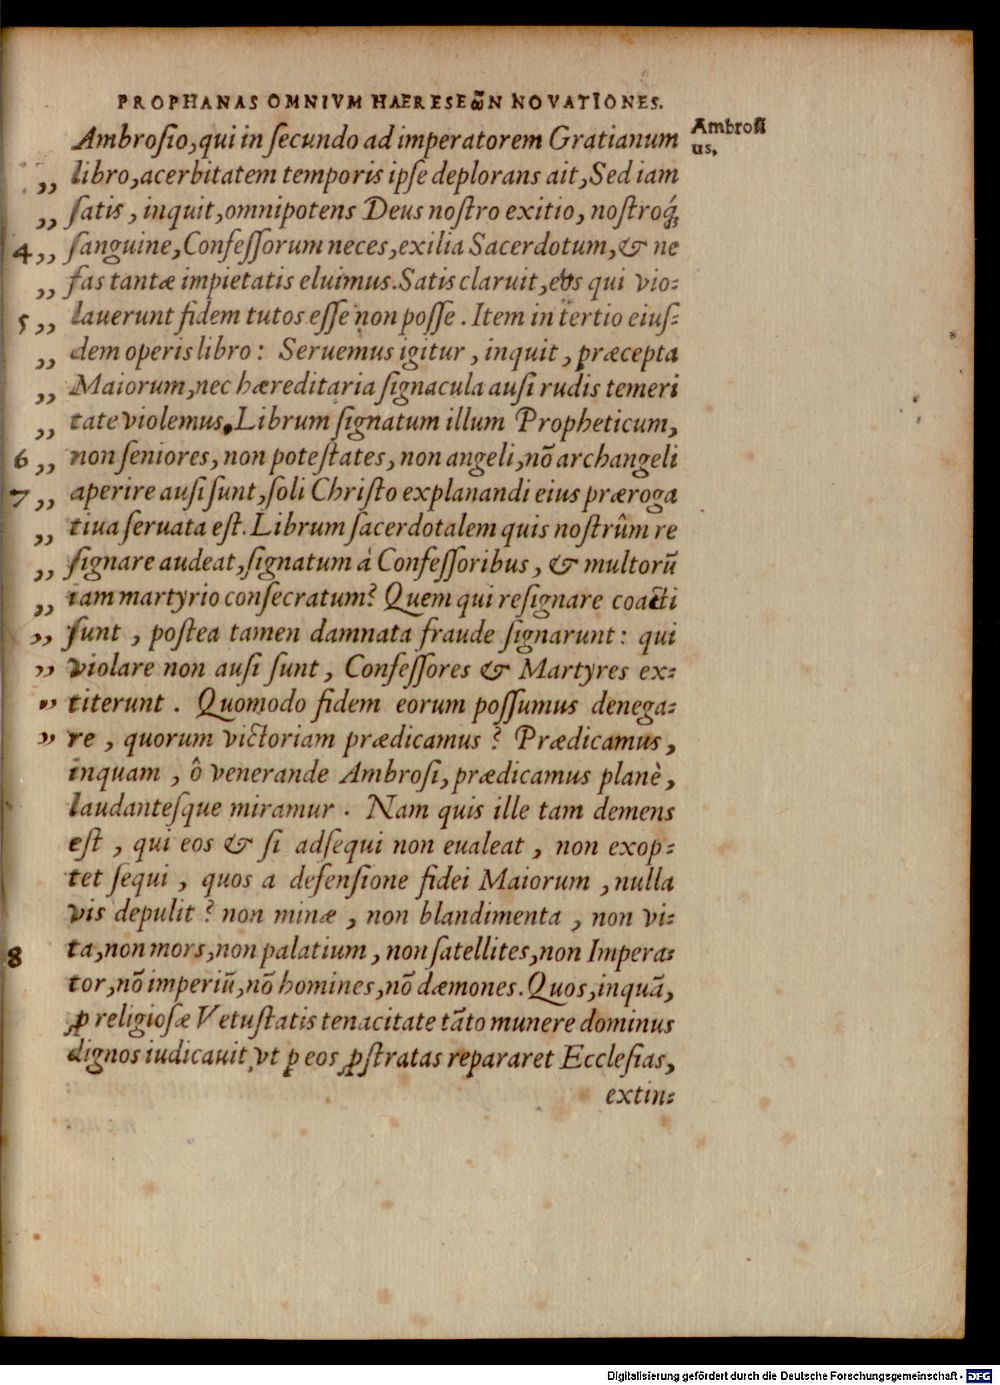 PROPHANAS OMNIVM HAERESEῶN NOVATIONES.
Ambrosio,qui in secundo ad imperatorem Gratianum
Ambrosi
us,
,, libro,acerbitatem temporis ipse deplorans ait,Sed iam
,, satis, inquit,omnipotens Deus nostro exitio, nostroq́;
4,, sanguine,Confessorum neces,exilia Sacerdotum,& ne
,, fas tantæ impietatis eluimus.Satis claruit,eos qui vio-
5 ,, lauerunt fidem tutos esse non posse. Item in tertio eius-
,, dem operis libro: Seruemus igitur, inquit, præcepta
,, Maiorum,nec hæreditaria signacula ausi rudis temeri
,, tate violemus.Librum signatum illum Propheticum,
6 ,, non seniores, non potestates, non angeli,nõ archangeli
7 ,, aperire ausi sunt,soli Christo explanandi eius præroga
,, tiua seruata est. Librum sacerdotalem quis nostrûm re
,, signare audeat,signatum à Confessoribus, & multorũ
,, iam martyrio consecratum? Quem qui resignare coacti
,, sunt, postea tamen damnata fraude signarunt: qui
,, violare non ausi sunt, Confessores & Martyres ex-
,, titerunt. Quomodo fidem eorum possumus denega-
,, re, quorum victoriam prædicamus? Prædicamus,
inquam, ô venerande Ambrosi, prædicamus planè,
laudantesque miramur. Nam quis ille tam demens
est, qui eos & si adsequi non eualeat, non exop-
tet sequi, quos a defensione fidei Maiorum, nulla
vis depulit? non minæ, non blandimenta, non vi-
8 ta,non mors,non palatium, non satellites,non Impera-
tor,nõ imperiũ,nõ homines,nõ dæmones. Quos,inquã,
ꝓ religiosæ Vetustatis tenacitate tãto munere dominus
dignos iudicauit, vt ꝑ eos ꝓstratas repararet Ecclesias,
extin-
Digitalisierung gefördert durch die Deutsche Forschungsgemeinschaft - DFG